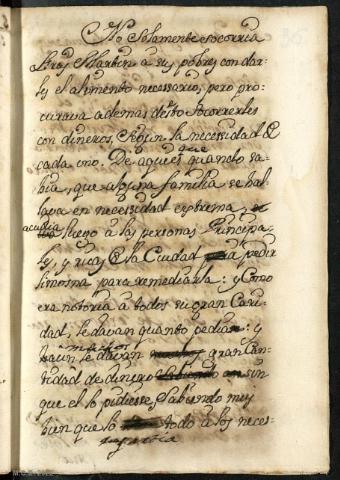 No solamente socorria
Pros Martin à sus pobres con dar-
les el alimento necessario, pero pro-
curava ademas desto socorrerles
con dineros, segun la necessidad de
cada uno. De aqui es que quando sa-
bia, que alguna familia se hal-
lava en necessidad extrema,
acudia luego à las personas Principa-
les, y ricas de la Ciudad à pedir
limosna para remediarla: y como
era notoria à todos su gran Cari-
dad, le davan quanto pedia: y
aun le davan gran Can-
tidad de dinero sin
que el lo pidiesse, sabiendo muy
bien que lo repartia todo à los neces-